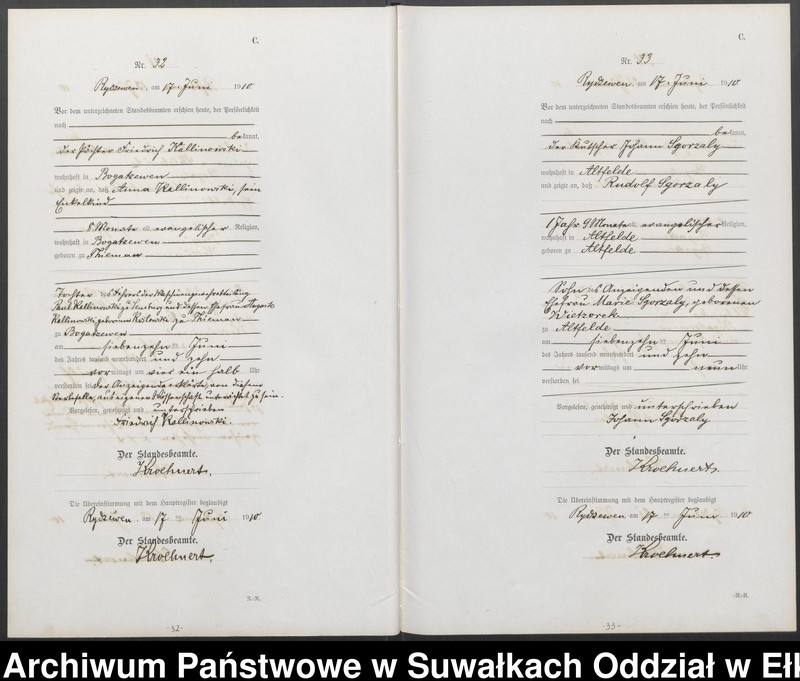 C.
Nr. 32
Rydzewen, am 17. Juni 1910
Vor dem unterzeichneten Standesbeamten erschien heute, der Persönlichkeit
nach
bekannt,
der Pächter Friedrich Kallinowski
wohnhaft in Bogatzewen
und zeigte an, daß Anna Kallinowski, sein
Enkelkind
8 Monate alt, evangelischer Religion,
wohnhaft in Bogatzewen
geboren zu Thiemau
Tochter des
Paul Kallinowski und dessen Ehefrau
Kallinowski geborenen zu Thiemau
zu Bogatzewen
am siebenzehnten Juni
des Jahres tausend neunhundert und zehn
vormittags um vier ein halb Uhr
verstorben sei, der Anzeigende erklärte, von diesem
Sterbefalle, aus eigener Wissenschaft unterrichtet zu sein.
Vorgelesen, genehmigt und unterschrieben
Friedrich Kallinowski.
Der Standesbeamte.
Kroehnert.
Die Übereinstimmung mit dem Hauptregister beglaubigt
Rydzewen, am 17 ten Juni 1910
Der Standesbeamte.
Kroehnert.
R.-R.
-32-
C.
Nr. 33
Rydzewen, am 17. Juni 1910
Vor dem unterzeichneten Standesbeamten erschien heute, der Persönlichkeit
nach
bekannt,
der Kutscher Johann Sgorzaly
wohnhaft in Altfelde
und zeigte an, daß Rudolf Sgorzaly
1 Jahr 9 Monate alt, evangelischer Religion,
wohnhaft in Altfelde
geboren zu Altfelde
Sohn des Anzeigenden und dessen
Ehefrau Marie Sgorzaly, geborenen
Wietzorek
zu Altfelde
am siebenzehnten Juni
des Jahres tausend neunhundert und zehn
vormittags um neun Uhr
verstorben sei.
Vorgelesen, genehmigt und unterschrieben
Johann Sgorzaly
Der Standesbeamte.
Kroehnert.
Die Übereinstimmung mit dem Hauptregister beglaubigt
Rydzewen am 17 ten Juni 1910
Der Standesbeamte.
Kroehnert.
R.-R.
-33-
Archiwum Państwowe w Suwałkach Oddział w Ełk